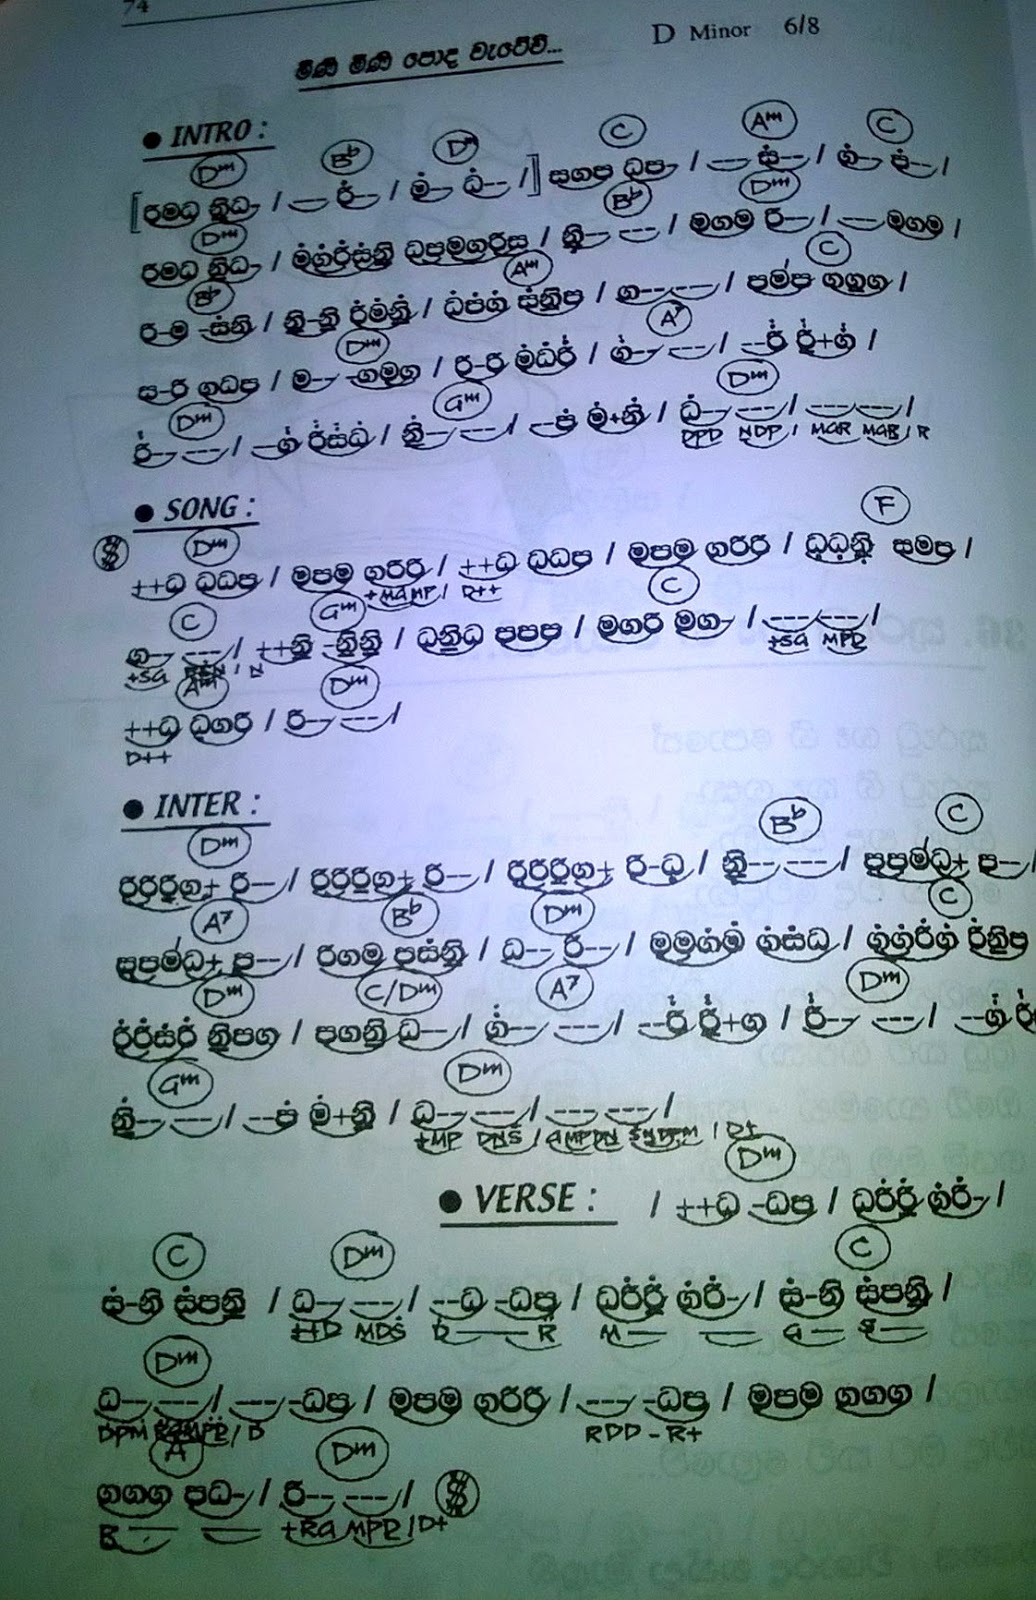 74
D Minor 6/8
මිණි මිණි පොද වැටේවී...
● INTRO :
Dm B♭ Dm C Am C
[රිමධ නිධ- / --- රි̇-- / ම̇-- ධ̇-- /] සගප ධප- / --- ස̇-- / ග̇-- ප̇-- /
Dm B♭ Dm
රිමධ නිධ- / ම̇ග̇රි̇ස̇නි ධපමගරිස / නි-- --- / මගම රි-- / --- මගම /
B♭ Am C
රි-ම -ස̇නි / නි-නි රි̇ම̇නි̇ / ධ̇ප̇ග̇ ස̇නිප / ග-- --- / පම'ප ගගග /
Dm A7
ස-රි ගධප / ම-- -ගමග / රි-රි ම̇ධ̇රි̇ / ග̇-- --- / --රි̇ රි̇+ග̇ /
Dm Gm Dm
රි̇-- --- / --ග̇ රි̇ස̇ධ̇ / නි̇-- --- / --ප̇ ම̇+නි̇ / ධ̇-- --- / --- --- /
DPD NDP / MGR MGR / R
● SONG :
Dm F
++ධ ධධප / මපම ගරිරි / ++ධ ධධප / මපම ගරිරි / ධ̣ධ̣නි̣ සමප /
+MGMP / D++
C Gm C
ග-- --- / ++නි -නිනි / ධනිධ පපප / මගරි මග- / --- --- /
+SG / N +SG MPD
Am Dm
++ධ ධගරි / රි-- --- /
D++
● INTER :
Dm B♭ C
රිරිරිග+ රි-- / රිරිරිග+ රි-- / රිරිරිග+ රි-ධ̣ / නි̣-- --- / පපම'ධ+ ප-- /
A7 B♭ Dm C
පපම'ධ+ ප-- / රිගම පස̇නි / ධ-- රි-- / මමග̇ම̇ ග̇ස̇ධ / ග̇ග̇රි̇ග̇ රි̇නිප
Dm C/Dm A7 Dm
රි̇රි̇ස̇රි̇ නිපග / පගනි ධ-- / ග̇-- --- / --රි̇ රි̇+ග / රි̇-- --- / --ග̇
Gm Dm
නි̇-- --- / --ප̇ ම̇+නි / ධ-- --- / --- --- /
+MP DNS / GMPDN SNDPM / D+
Dm
● VERSE : / ++ධ -ධප / ධරි̇රි̇ ග̇රි̇- /
C Dm C
ස̇-නි ස̇පනි / ධ-- --- / --ධ -ධප / ධරි̇රි̇ ග̇රි̇- / ස̇-නි ස̇පනි /
++D MDS D R M G
Dm
ධ-- --- / --- -ධප / මපම ගරිරි / --- -ධප / මපම ගගග /
DPM / D RDD - R+
A Dm
ගගග පධ- / රි-- --- /
R +RG MPD / D+